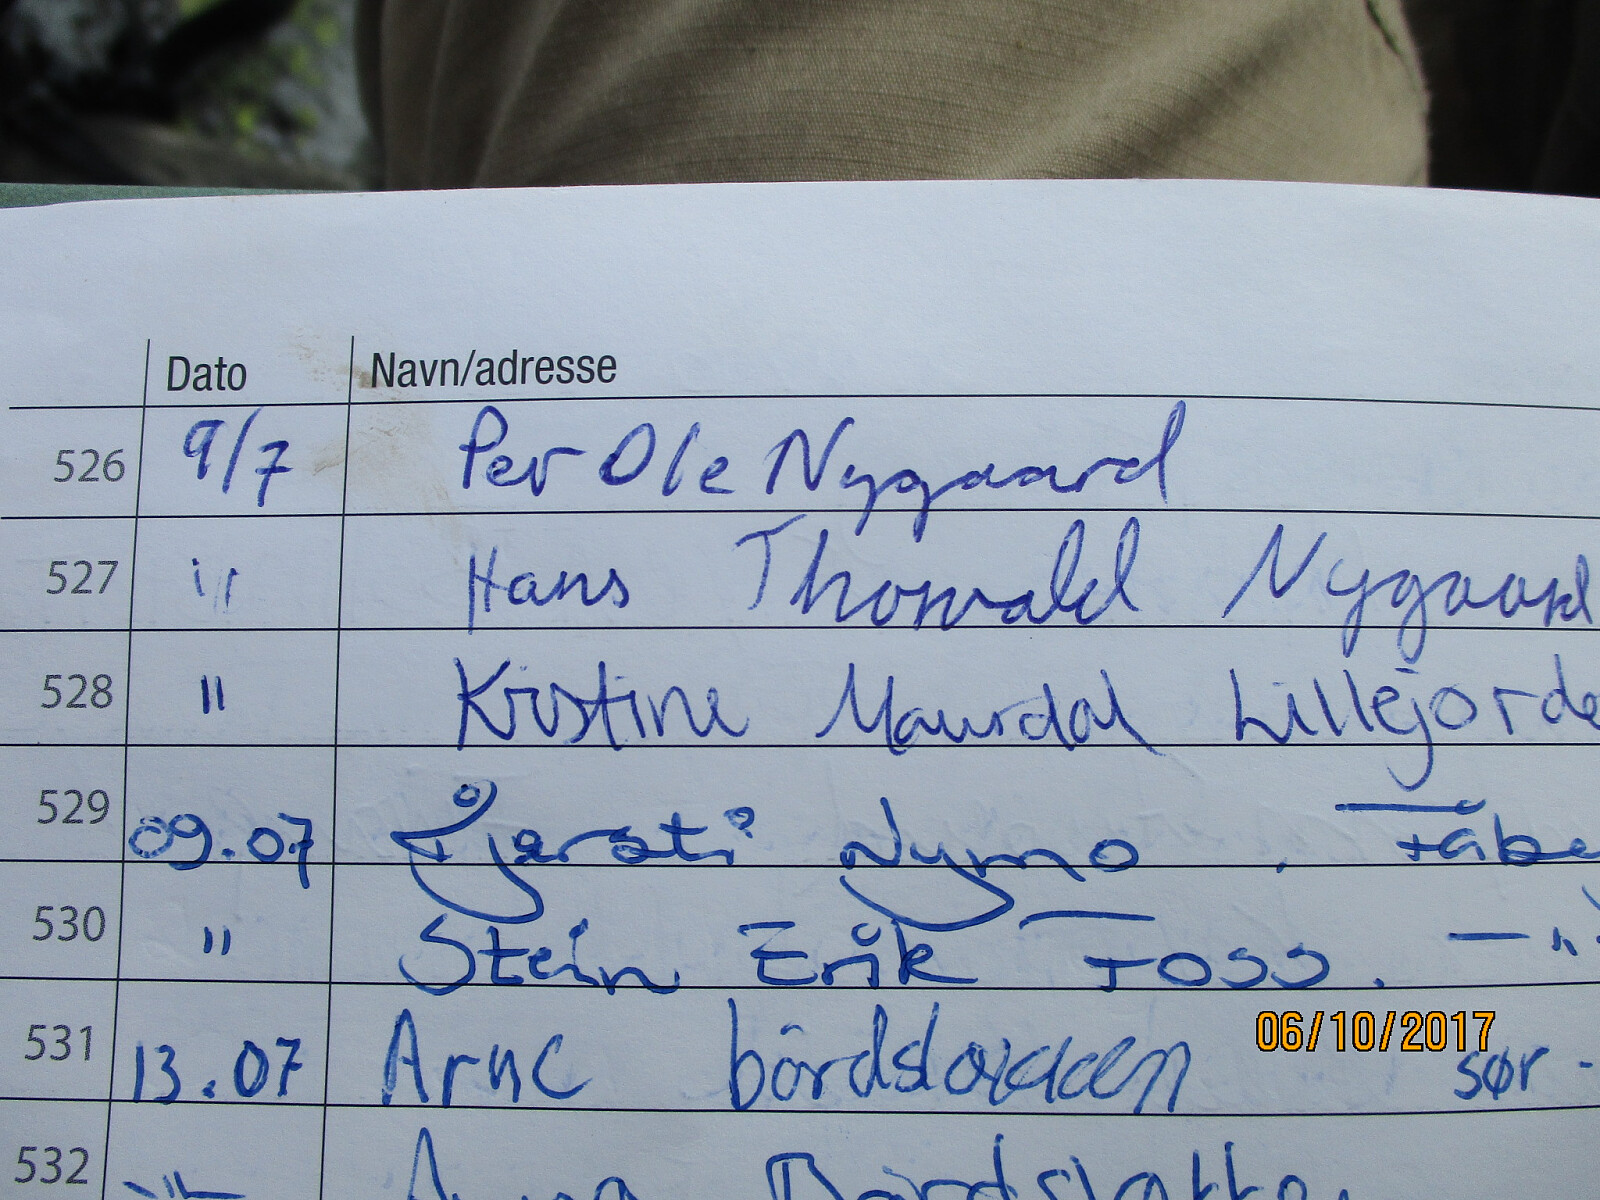 Dato Navn/adresse
526 9/7 Per Ole Nygaard
527 " Hans Thorvald Nygaard
528 " Kristine Maurdal Lillejorde
529 09.07 Kjersti Nymo . Fåbe
530 " Stein Erik Foss. — " 
06/10/2017
531 13.07 Arne sør -
532 "